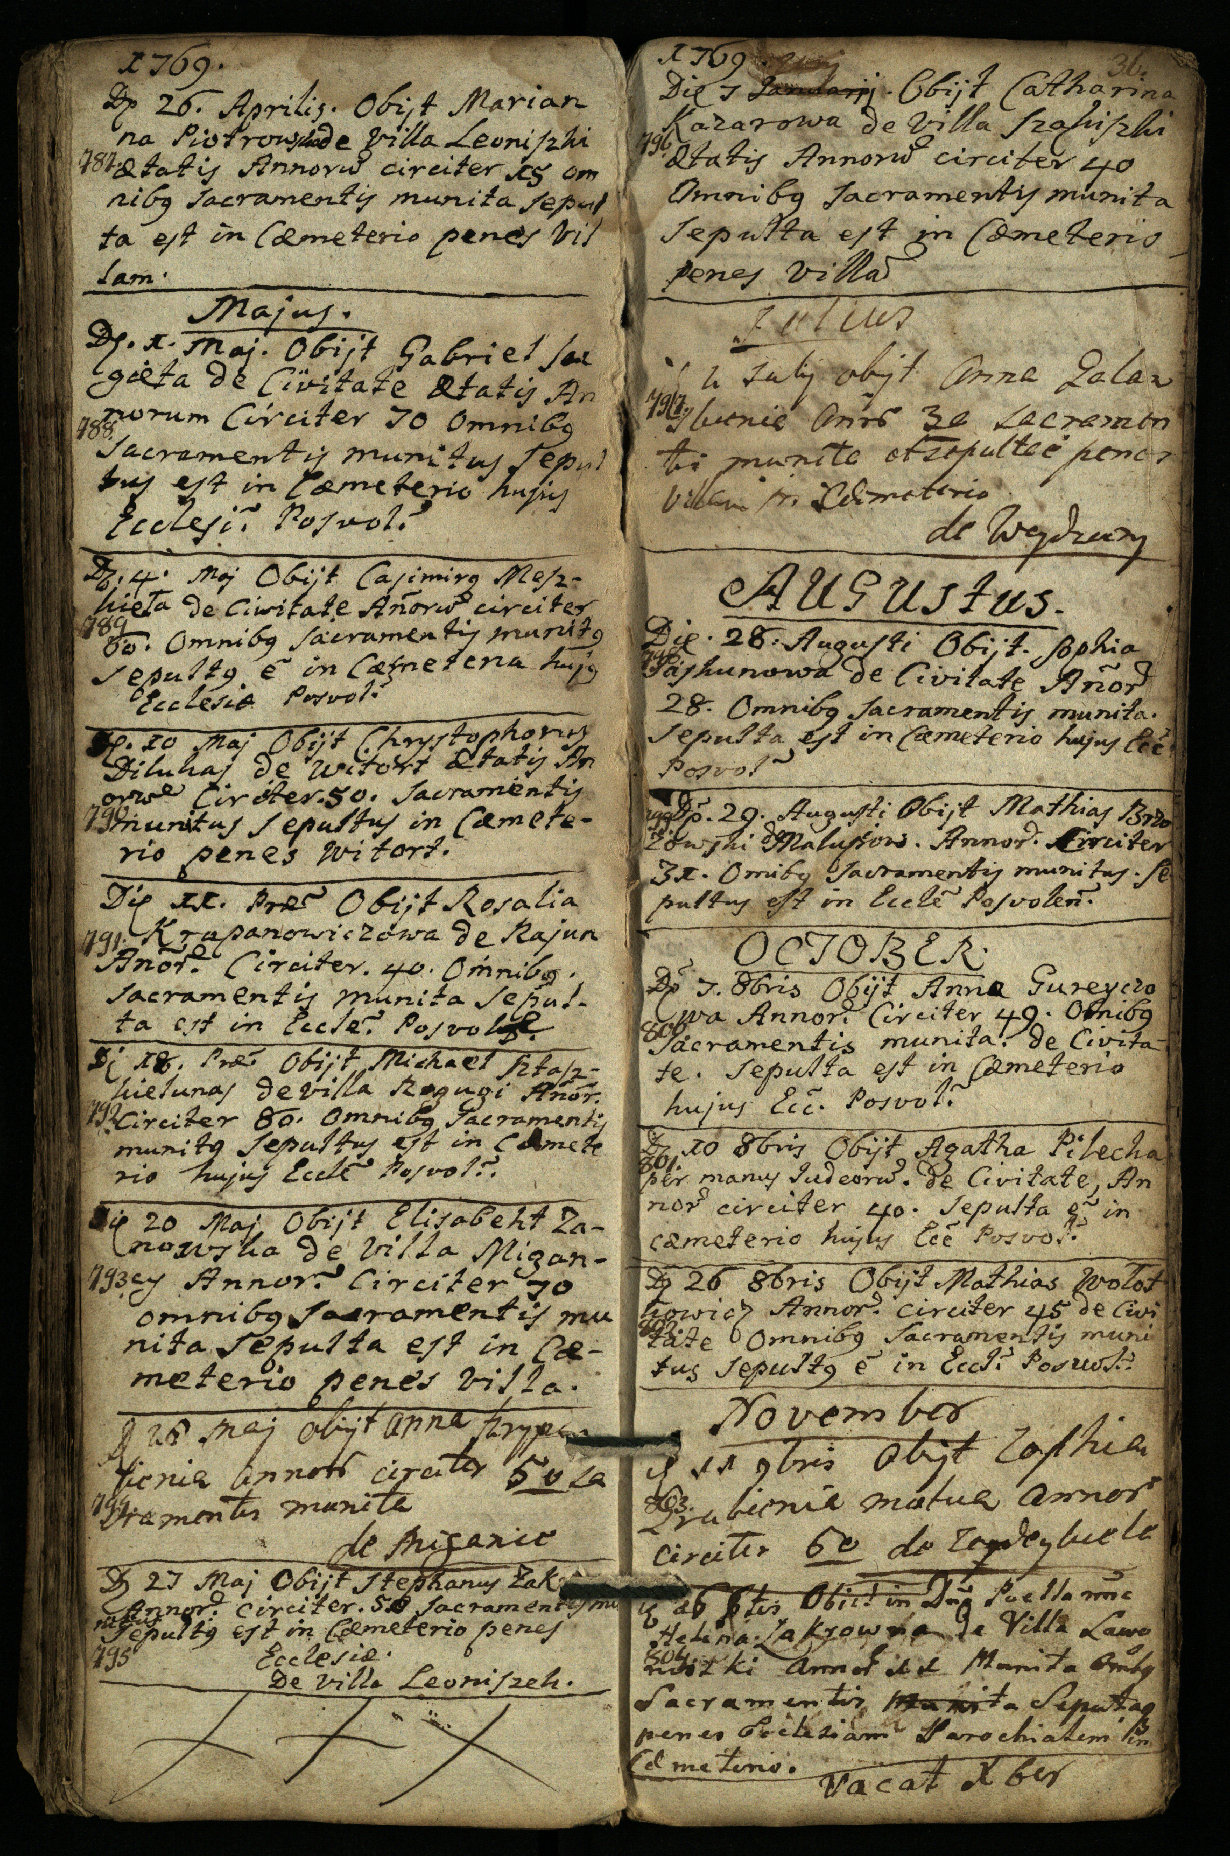 1769.
Die 26. Aprilis. Obijt Marian
na Piotrowska de Villa Leoniszki
787. Ætatis Annorũ circiter 15 om
nibq Sacramentis munita Sepul
ta est in Cæmeterio penes Vil
lam.
Majus.
Die. 1. Maj. Obijt Gabriel
gieta de Civitate Ætatis An
norum Circiter 70 Omnibq
788.
Sacramentis munitus Sepul
tus est in Cæmeterio hujus
Ecclesiæ Posvol.
Die. 4. Maj Obijt Casimirq Mesz-
kieta de Civitate Añorũ circiter
789
60. Omnibq Sacramentis munitq
Sepultq ẽ in Cæmeterio hujq
Ecclesiæ Posvol.
Die. 10 Maj Obijt Chrystophorus
Dilukas de Witort Ætatis An
orũ Circiter. 50. Sacramentis
790 munitus Sepultus in Cæmete-
rio penes Witort.
Die 11. Præ Obijt Rosalia
791. Krapanowiczowa de Rajun
Añor. Circiter. 40. Omnibq.
Sacramentis munita Sepul-
ta est in Eccle. Posvol.
Die 18. Præ Obijt Michael Sztasz-
kielunas de villa Rogugi Añor.
792. Circiter 80. Omnibq Sacramentis
munitq Sepultus est in Cæmete
rio hujus Eccle Posvol.
Die 20 Maj Obijt Elisabeht Za-
nowska de Villa Migan-
793 cy Annor. Circiter 70
omnibq Sacramentis mu
nita Sepulta est in Cæ-
meterio penes villa.
26 Maj obijt Anna
annor circiter 50 Sa
794 cramentis munita
de Miganic
Die 27 Maj Obijt Stephanus
Annor. Circiter. 50 Sacramentis mu
nitus
Sepultq est in Cæmeterio penes
795 Ecclesiæ.
De villa Leoniszek.
1769. 36.
Die 7 Januarij. Obijt Catharina
Kazarowa de Villa
796 Ætatis Annorũ circiter 40
Omnibq Sacramentis munita
Sepulta est in Cæmeterio
penes villã
Julius
Julij obijt Anna
797. Annor 30 Sacramen
tis munita et sepulta ẽ penes
villam in Cæmeterio
de
AUGUSTUS.
Die. 28. Augusti Obijt. Sophia
de Civitate Añor
28. Omnibq Sacramentis munita.
Sepulta est in Cæmeterio hujus Ecẽ
Posvol
Die. 29. Augusti Obijt Mathias Brzo
zowski Annor. Circiter
31. Omibq Sacramentis munitus. Se
pultus est in Eccle Posvolen.
OCTOBER.
Die 7. 8bris Obijt Anna Gureyczo
wa Annor. Circiter 49. Omnibq
800
Sacramentis munita. de Civita-
te. Sepulta est in Cæmeterio
hujus Ecc. Posvol.
Die 10 8bris Obijt Agatha Pilecha
801.
per manus Judeorũ. de Civitate, An
nor circiter 40. Sepulta ẽ in
cæmeterio hujus Ecẽ Posvol.
Die 26 8bris Obijt Mathias Wolot
kowicz Annor. circiter 45 de Civi
tate Omnibq Sacramentis muni
tus Sepultq ẽ in Eccl. Posvol.
November
11 9bris Obijt Zophia
803. annor
circiter 60 de
16 9bris Obiit in Dño Puella
Helena de Villa Lawo
804
niszki Annor 11 Munita Omibq
Sacramentis Munita Sepulta
penes Ecclesiam Parochialem in
Cæmeterio.
Vacat Xber